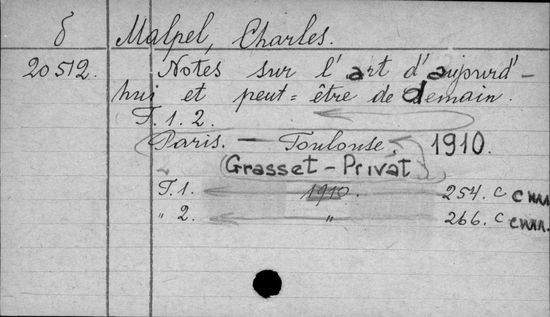 δ Malpel, Charles.
20512. Notes sur l'art d'aujourd'-
hui et peut=être de demain.
T. 1. 2.
Paris. — Toulouse. 1910.
(Grasset-Privat)
T. 1. 1910. 254. c
" 2. " 266. c